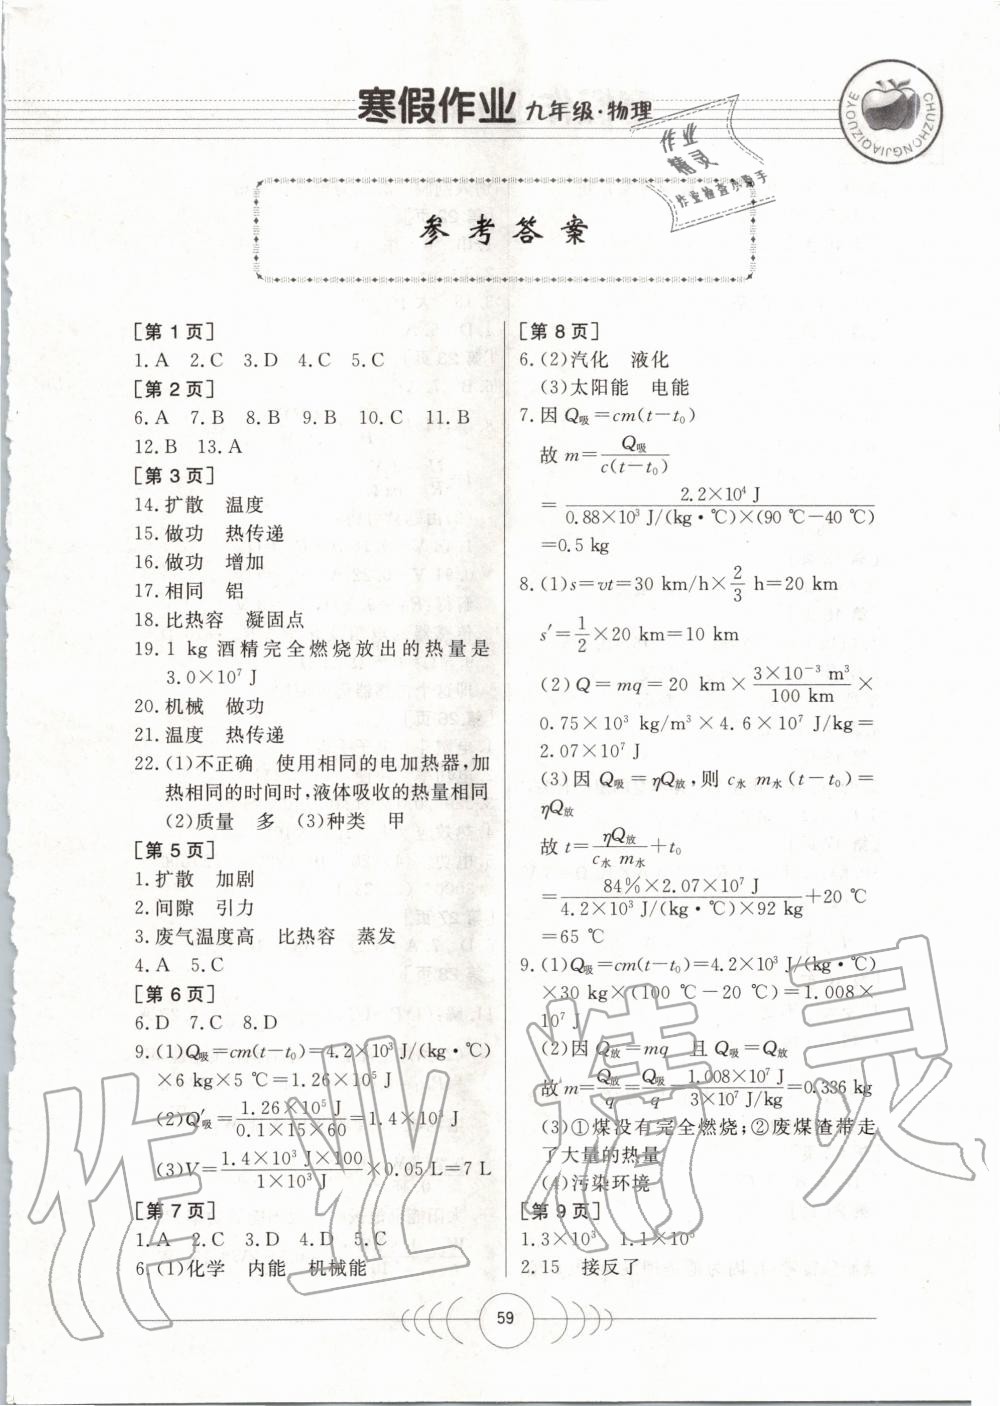 寒假作业 九年级·物理
CHUZHONGJIAQIZUOYE
作业
精灵
作业检查小助手
参考答案
[第1页]
1.A 2.C 3.D 4.C 5.C
[第2页]
6.A 7.B 8.B 9.B 10.C 11.B
12.B 13.A
[第3页]
14.扩散 温度
15.做功 热传递
16.做功 增加
17.相同 铝
18.比热容 凝固点
19.1 kg 酒精完全燃烧放出的热量是
3.0×10⁷ J
20.机械 做功
21.温度 热传递
22.(1)不正确 使用相同的电加热器,加
热相同的时间时,液体吸收的热量相同
(2)质量 多 (3)种类 甲
[第5页]
1.扩散 加剧
2.间隙 引力
3.废气温度高 比热容 蒸发
4.A 5.C
[第6页]
6.D 7.C 8.D
9.(1)Q吸=cm(t-t₀)=4.2×10³ J/(kg·℃)
×6 kg×5 ℃=1.26×10⁵ J
(2)Q′吸=1.26×10⁵ J/0.1×15×60=1.4×10³ J
(3)V=1.4×10³ J×100/1×10³ J×0.05 L=7 L
[第7页]
1.A 2.C 3.D 4.D 5.C
6.(1)化学 内能 机械能
[第8页]
6.(2)汽化 液化
(3)太阳能 电能
7.因Q吸=cm(t-t₀)
故m=Q吸/c(t-t₀)
=2.2×10⁴ J/0.88×10³ J/(kg·℃)×(90 ℃-40 ℃)
=0.5 kg
8.(1)s=vt=30 km/h×2/3 h=20 km
s′=1/2×20 km=10 km
(2)Q=mq=20 km×3×10⁻³ m³/100 km×
0.75×10³ kg/m³×4.6×10⁷ J/kg=
2.07×10⁷ J
(3)因Q吸=ηQ放,则c水 m水(t-t₀)=
ηQ放
故t=ηQ放/c水 m水+t₀
=84%×2.07×10⁷ J/4.2×10³ J/(kg·℃)×92 kg+20 ℃
=65 ℃
9.(1)Q吸=cm(t-t₀)=4.2×10³ J/(kg·℃)
×30 kg×(100 ℃-20 ℃)=1.008×
10⁷ J
(2)因Q放=mq 且Q吸=Q放
故m=Q放/q=Q吸/q=1.008×10⁷ J/3×10⁷ J/kg=0.336 kg
(3)①煤没有完全燃烧;②废煤渣带走
了大量的热量
(4)污染环境
[第9页]
1.3×10³ 1.1×10⁵
2.15 接反了
59
作业精灵